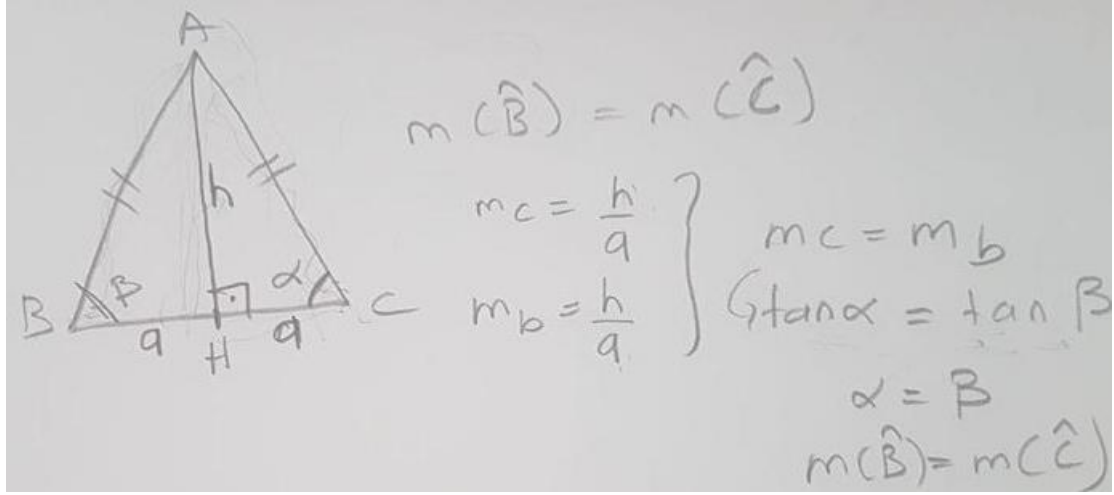 A
h
α
β
B
a
H
a
C
m(B̂) = m(Ĉ)
mc = h/a
mb = h/a
mc = mb
tanα = tan β
α = β
m(B̂) = m(Ĉ)